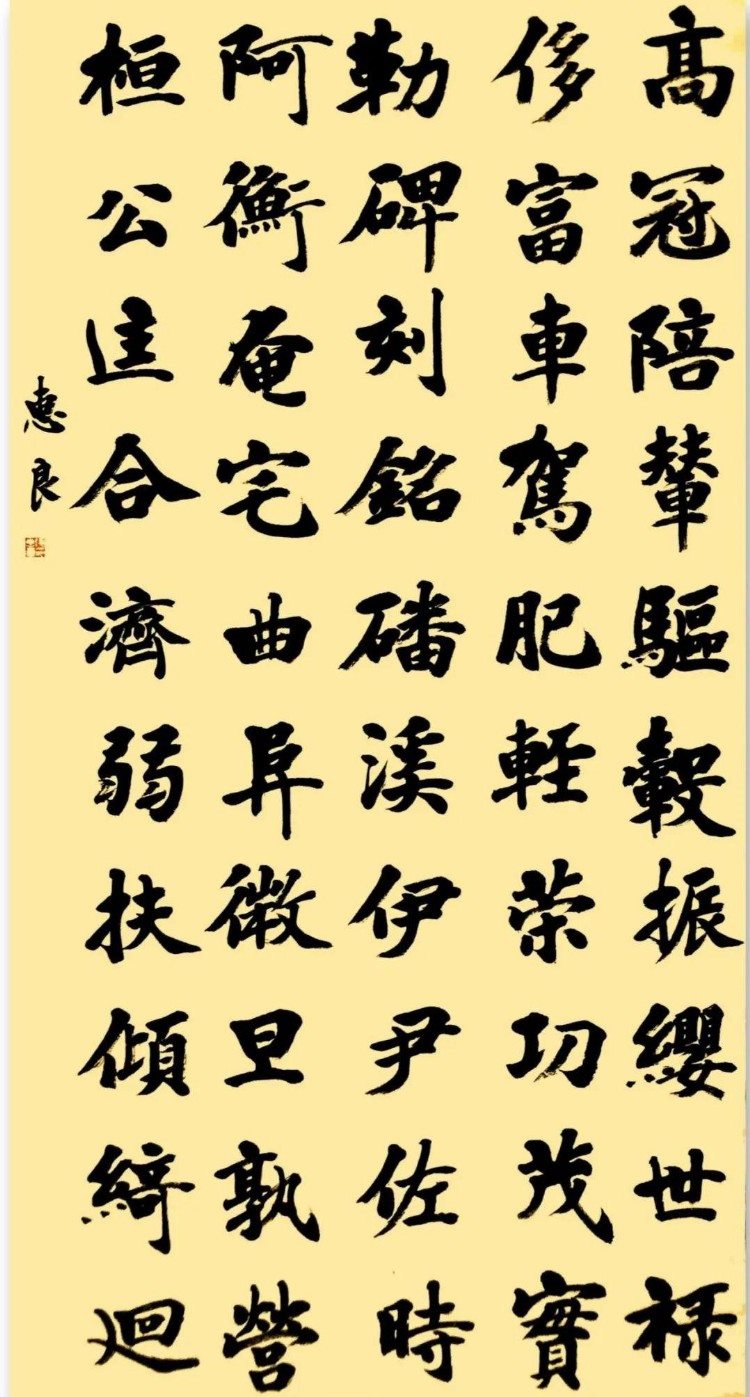 高冠陪輦驅轂振纓世禄
侈富車駕肥軽荣功茂實
勒碑刻銘磻溪伊尹佐時
阿衡奄宅曲阜微旦孰營
桓公匡合濟弱扶傾綺迴
惠良